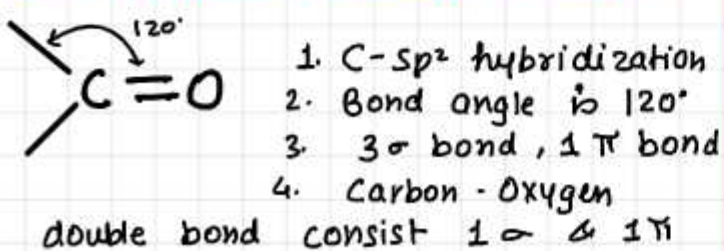 120°
C=O
1. C-sp² hybridization
2. Bond angle is 120°
3. 3σ bond, 1 π bond
4. Carbon - Oxygen
double bond consist 1σ & 1π